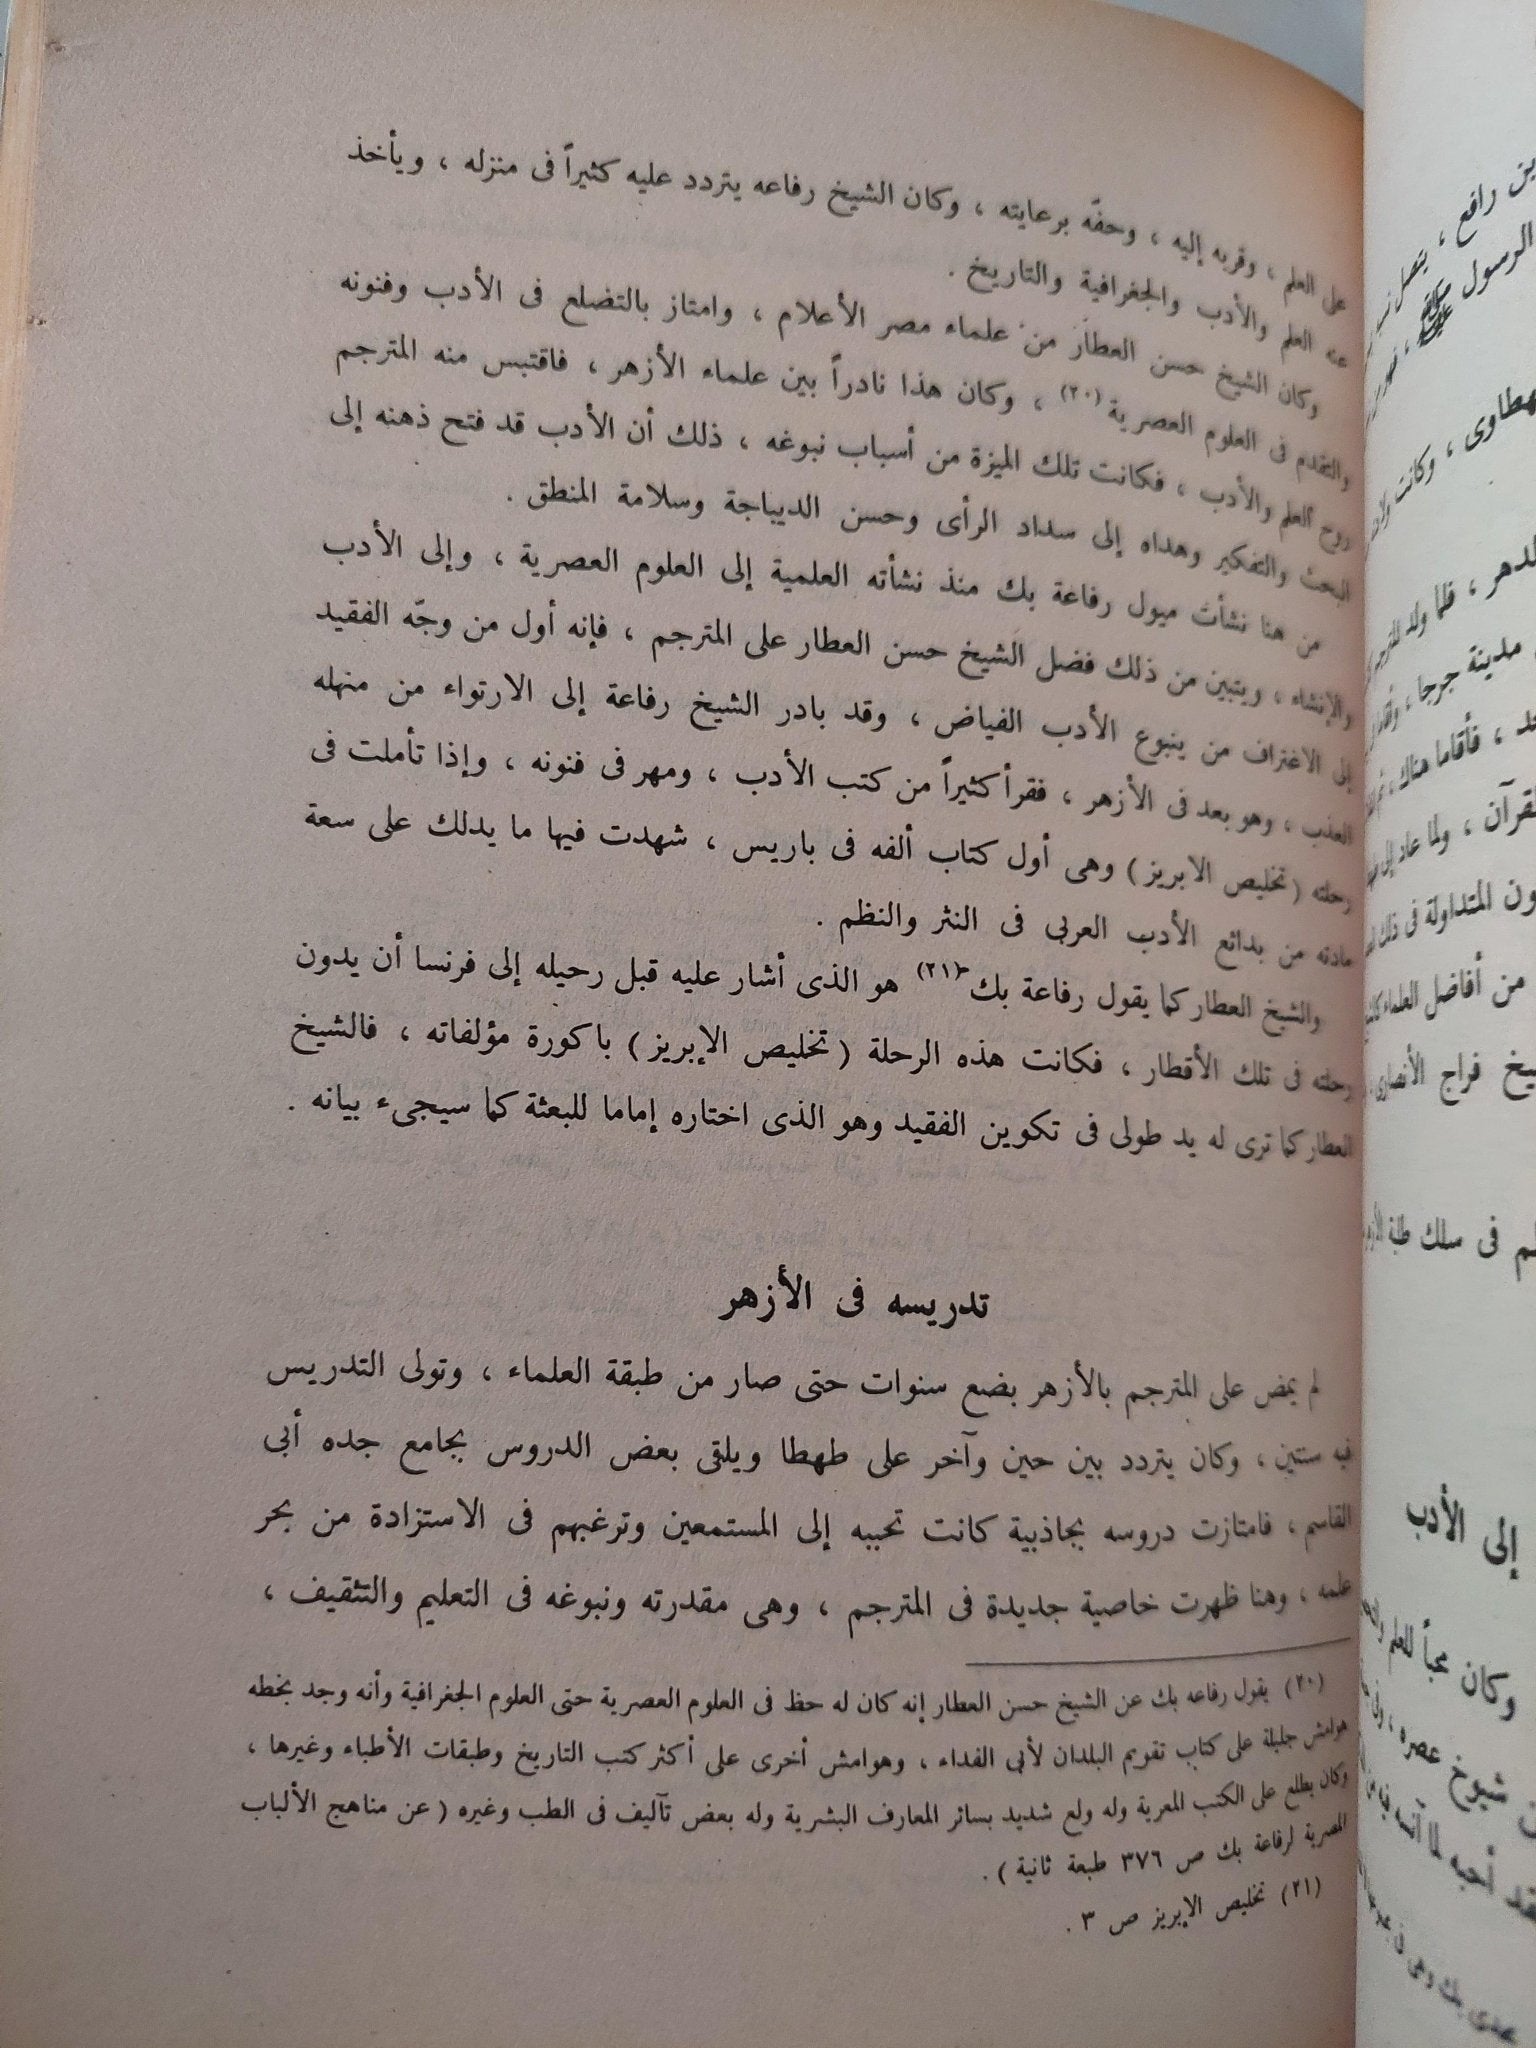 على العلم ، وقربه إليه ، وحفّه برعايته ، وكان الشيخ رفاعه يتردد عليه كثيراً فى منزله ، ويأخذ
عنه العلم والأدب والجغرافية والتاريخ .
وكان الشيخ حسن العطار من علماء مصر الأعلام ، وامتاز بالتضلع فى الأدب وفنونه
والتقدم فى العلوم العصرية (٢٠) ، وكان هذا نادراً بين علماء الأزهر ، فاقتبس منه المترجم
روح العلم والأدب ، فكانت تلك الميزة من أسباب نبوغه ، ذلك أن الأدب قد فتح ذهنه إلى
البحث والتفكير وهداه إلى سداد الرأى وحسن الديباجة وسلامة المنطق .
من هنا نشأت ميول رفاعة بك منذ نشأته العلمية إلى العلوم العصرية ، وإلى الأدب
والإنشاء ، ويتبين من ذلك فضل الشيخ حسن العطار على المترجم ، فإنه أول من وجّه الفقيد
إلى الاغتراف من ينبوع الأدب الفياض ، وقد بادر الشيخ رفاعة إلى الارتواء من منهله
العذب ، وهو بعد فى الأزهر ، فقرأ كثيراً من كتب الأدب ، ومهر فى فنونه ، وإذا تأملت فى
رحلته (تخليص الابريز) وهى أول كتاب ألفه فى باريس ، شهدت فيها ما يدلك على سعة
مادته من بدائع الأدب العربى فى النثر والنظم .
والشيخ العطار كما يقول رفاعة بك (٢١) هو الذى أشار عليه قبل رحيله إلى فرنسا أن يدون
رحلته فى تلك الأقطار ، فكانت هذه الرحلة (تخليص الإبريز) باكورة مؤلفاته ، فالشيخ
العطار كما ترى له يد طولى فى تكوين الفقيد وهو الذى اختاره إماما للبعثة كما سيجىء بيانه .
تدريسه فى الأزهر
لم يمض على المترجم بالأزهر بضع سنوات حتى صار من طبقة العلماء ، وتولى التدريس
فيه سنتين ، وكان يتردد بين حين وآخر على طهطا ويلقى بعض الدروس بجامع جده أبى
القاسم ، فامتازت دروسه بجاذبية كانت تحببه إلى المستمعين وترغبهم فى الاستزادة من بحر
علمه ، وهنا ظهرت خاصية جديدة فى المترجم ، وهى مقدرته ونبوغه فى التعليم والتثقيف ،
(٢٠) يقول رفاعه بك عن الشيخ حسن العطار إنه كان له حظ فى العلوم العصرية حتى العلوم الجغرافية وأنه وجد بخطه
هوامش جليلة على كتاب تقويم البلدان لأبى الفداء ، وهوامش أخرى على أكثر كتب التاريخ وطبقات الأطباء وغيرها ،
وكان يطلع على الكتب المعربة وله ولع شديد بسائر المعارف البشرية وله بعض تآليف فى الطب وغيره ( عن مناهج الألباب
المصرية لرفاعة بك ص ٣٧٦ طبعة ثانية ) .
(٢١) تخليص الإبريز ص ٣ .
ين رافع ، يتصل
الرسول ﷺ
وكانت
الدهر ، فلما ولد
مدينة جرجا ،
فأقاما هناك ، ثم
القرآن ، ولما عاد إلى
المتداولة فى ذلك
من أفاضل العلماء
فراج الأنصارى
فى سلك طلبة
إلى الأدب
وكان محباً للعلم
شيوخ عصره ،